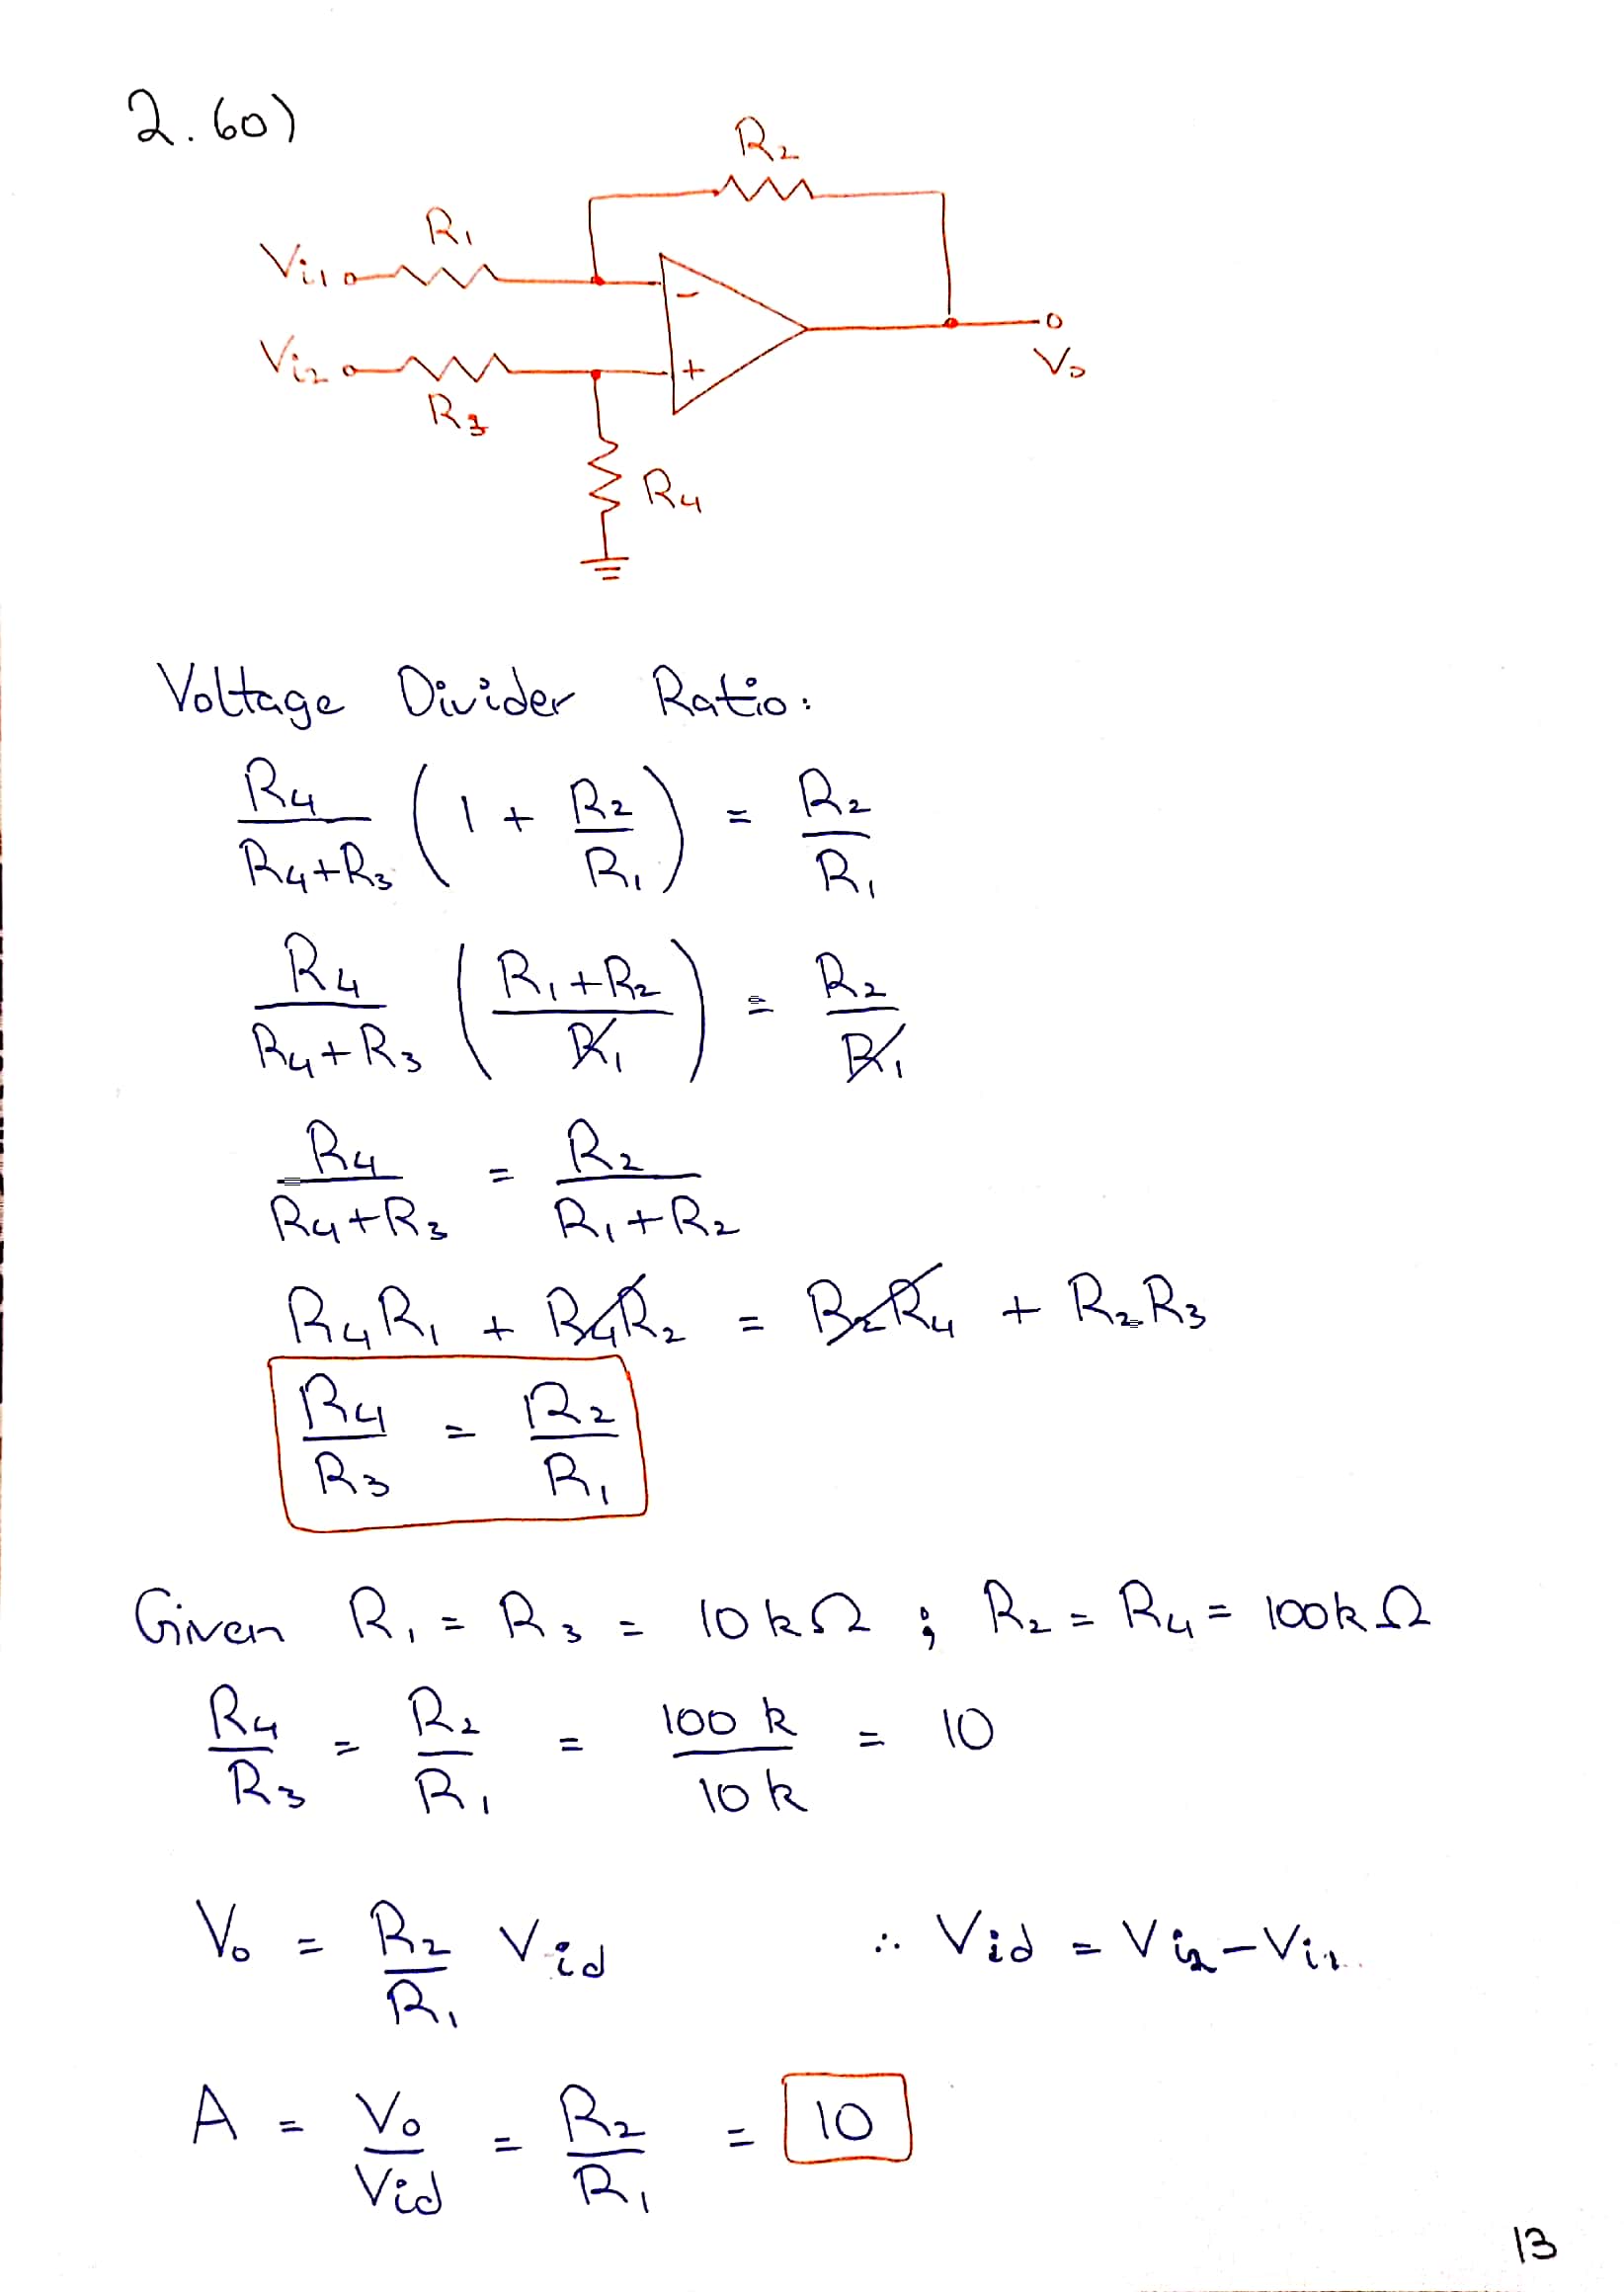 2.60)
R2
R1
Vi1
-
Vi2
+
Vo
R3
R4
Voltage Divider Ratio:
R4/(R4+R3) (1 + R2/R1) = R2/R1
R4/(R4+R3) ((R1+R2)/R1) = R2/R1
R4/(R4+R3) = R2/(R1+R2)
R4R1 + R4R2 = R2R4 + R2R3
R4/R3 = R2/R1
Given R1 = R3 = 10kΩ ; R2 = R4 = 100kΩ
R4/R3 = R2/R1 = 100k/10k = 10
Vo = R2/R1 Vid ∴ Vid = Vi2 - Vi1
A = Vo/Vid = R2/R1 = 10
13